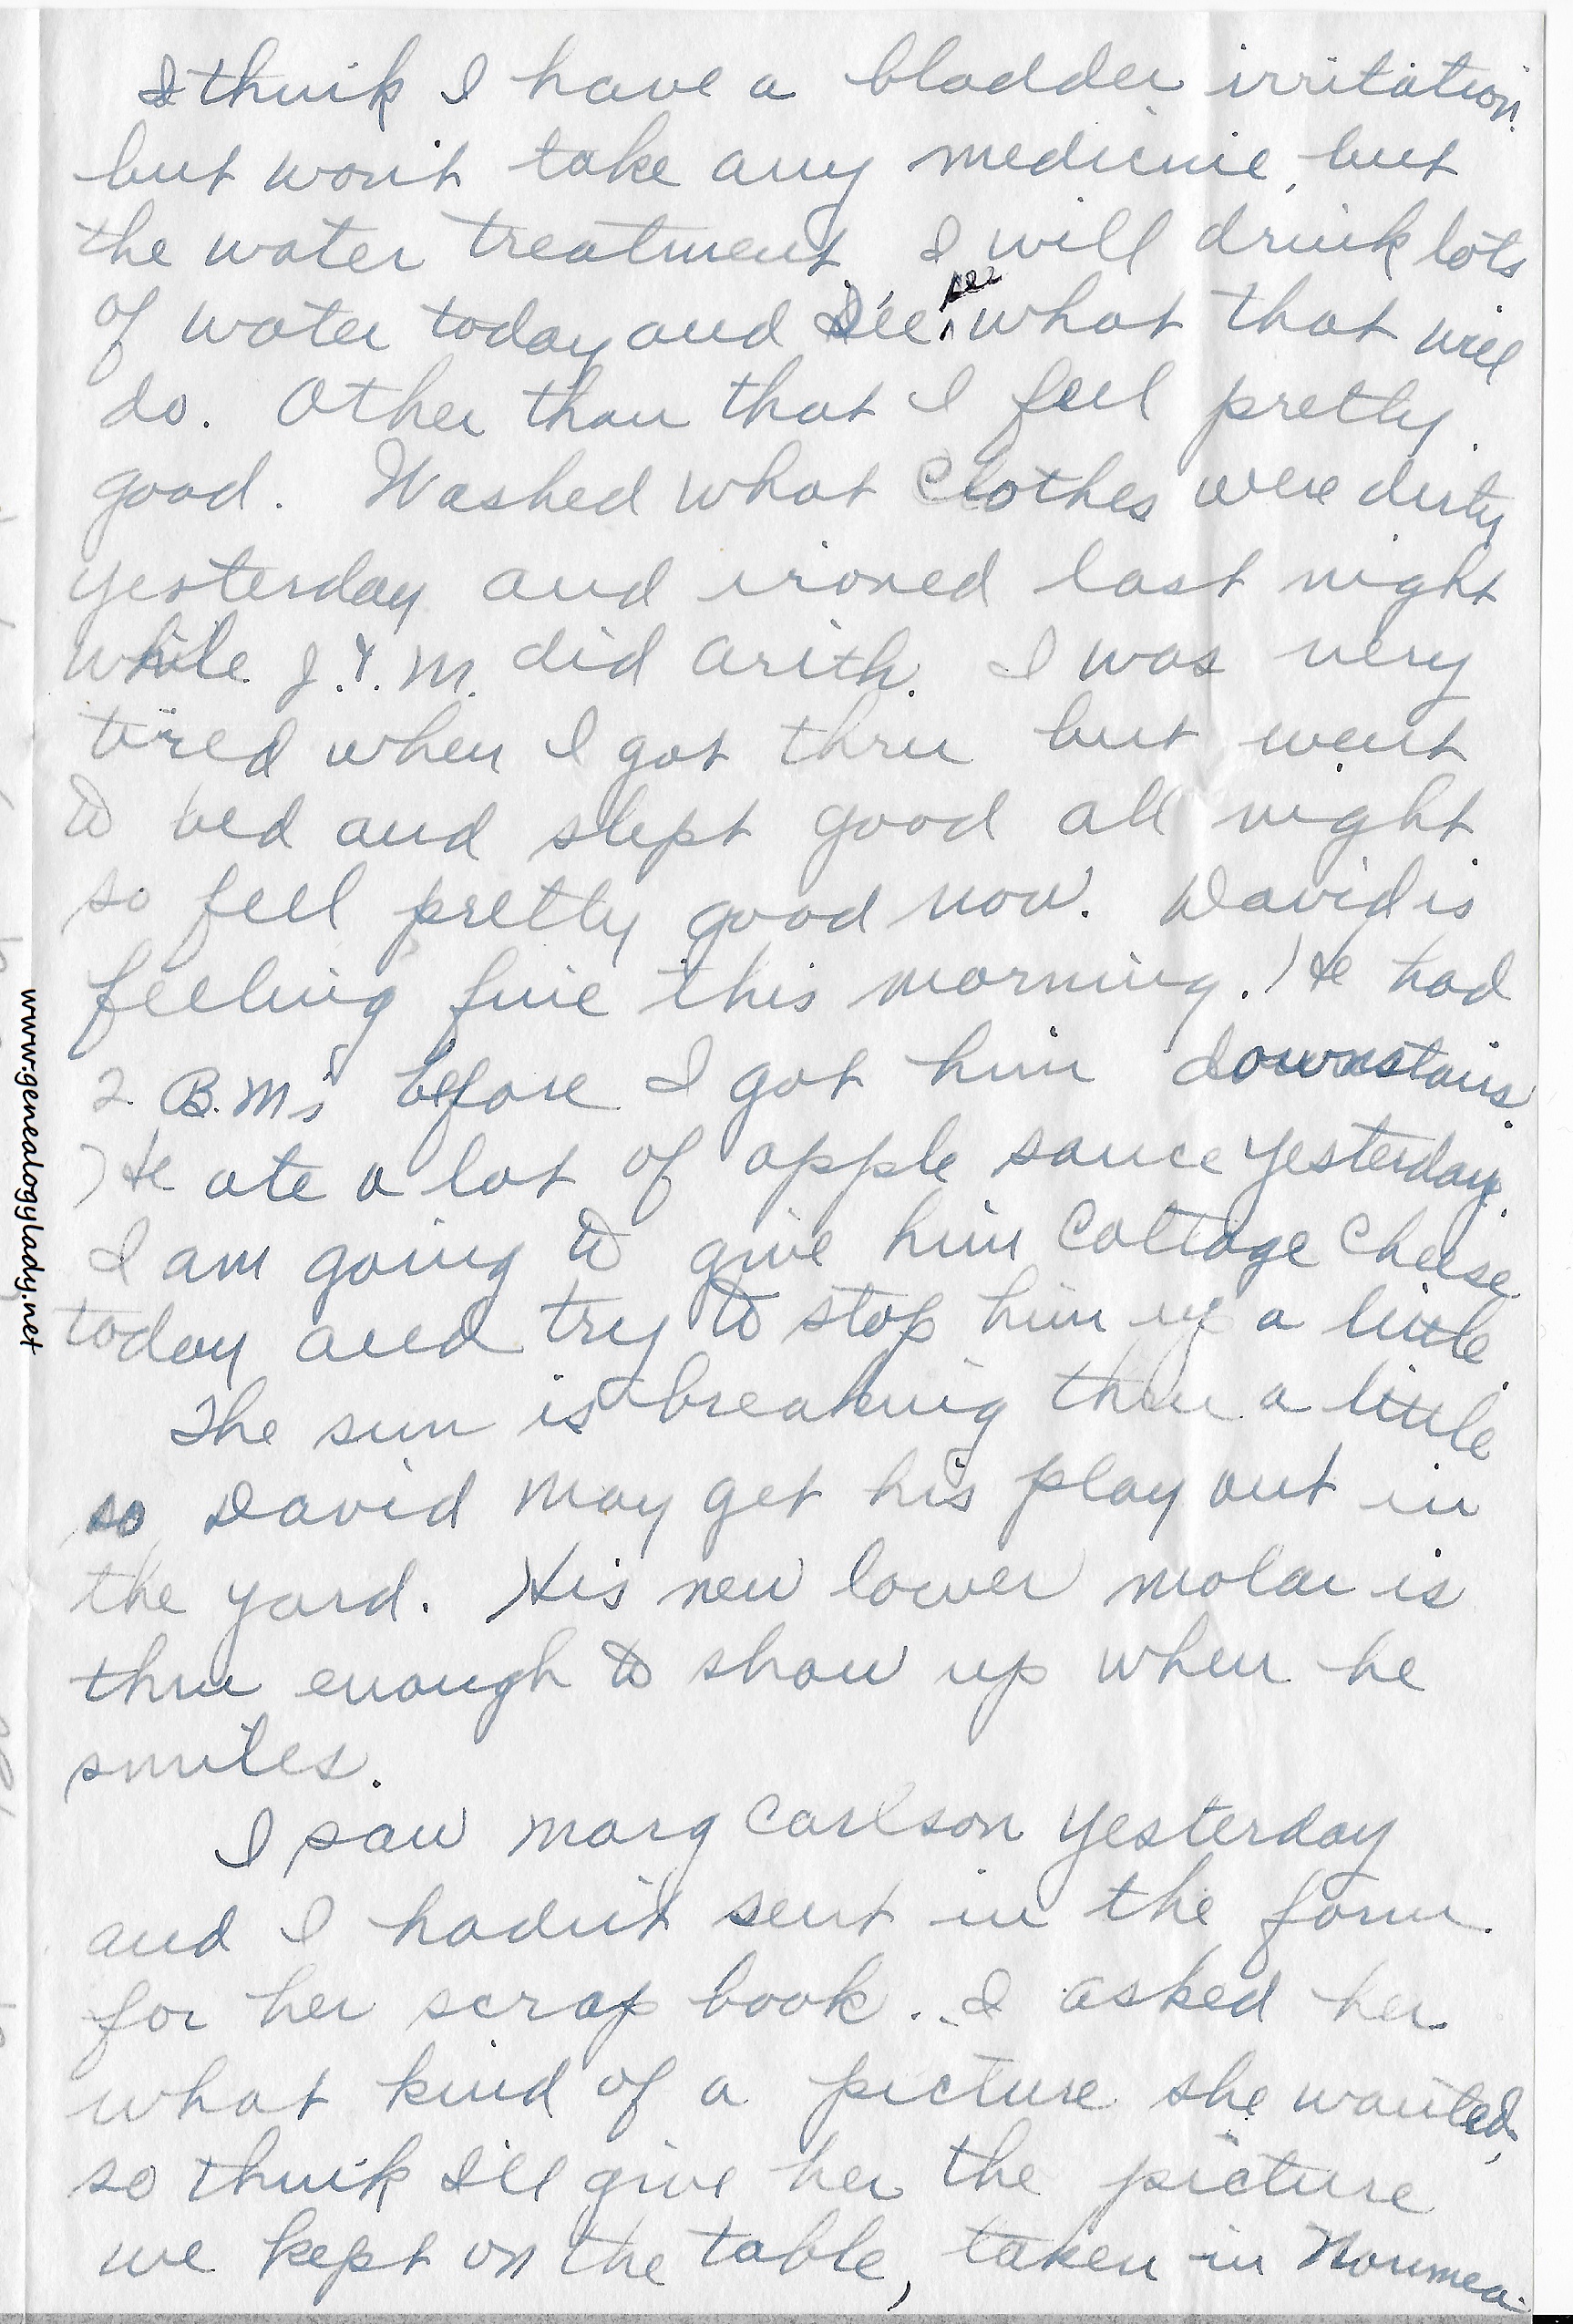 I think I have a bladder irritation
but won't take any medicine, but
the water treatment. I will drink lots
of water today and I'll see what that will
do. Other than that I feel pretty
good. Washed what clothes were dirty
yesterday and ironed last night
while J. & M. did arith. I was very
tired when I got thru but went
to bed and slept good all night
so feel pretty good now. David is
feeling fine this morning. He had
2 B.M.'s before I got him downstairs.
He ate a lot of apple sauce yesterday.
I am going to give him cottage cheese
today and try to stop him up a little.
The sun is breaking thru a little
so David may get his play out in
the yard. His new lower molar is
thru enough to show up when he
smiles.
I saw Marg Carlson yesterday
and I hadn't sent in the form
for her scrap book. I asked her
what kind of a picture she wanted,
so think I'll give her the picture
we kept on the table, taken in Noumea.
www.genealogylady.net